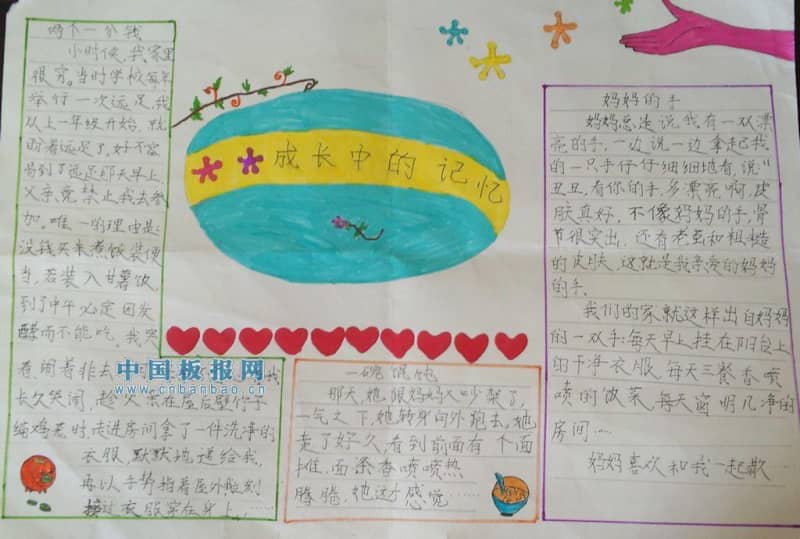 成长中的记忆
两个一分钱
小时候,我家里
很穷。当时学校每年
举行一次远足,我
从上一年级开始,就
盼着远足了,好不容
易到了远足那天早上,
父亲竟禁止我去参
加。唯一的理由是:
没钱买米煮饭装便
当,若装入甘薯饭,
到了中午必定因发
酵而不能吃。我哭
着,闹着非去
长久哭闹,趁父亲在屋后
喂鸡 时,走进房间拿了一件洗净的
衣服,默默地递给我,
再以手势指着屋外
过衣服穿在身上。……
中国板报网
www.cnbanbao.cn
一碗馄饨
那天,她跟妈妈又吵架了,
一气之下,她转身向外跑去。她
走了好久,看到前面有个面
摊,面 香喷喷热
腾腾,她这才感觉……
妈妈的手
妈妈总是说,我有一双漂
亮的手,一边说一边拿起我
的一只手仔仔细细地看,说"
丑丑,有你的手,多漂亮啊,皮
肤真好,不像妈妈的手,骨
节很突出,还有老茧和粗糙
的皮肤,这就是我亲爱的妈妈
的手。
我们的家就这样出自妈妈
的一双手:每天早上挂在阳台上
的干净衣服,每天三餐香喷
喷的饭菜,每天窗明几净的
房间……
妈妈喜欢和我一起散……